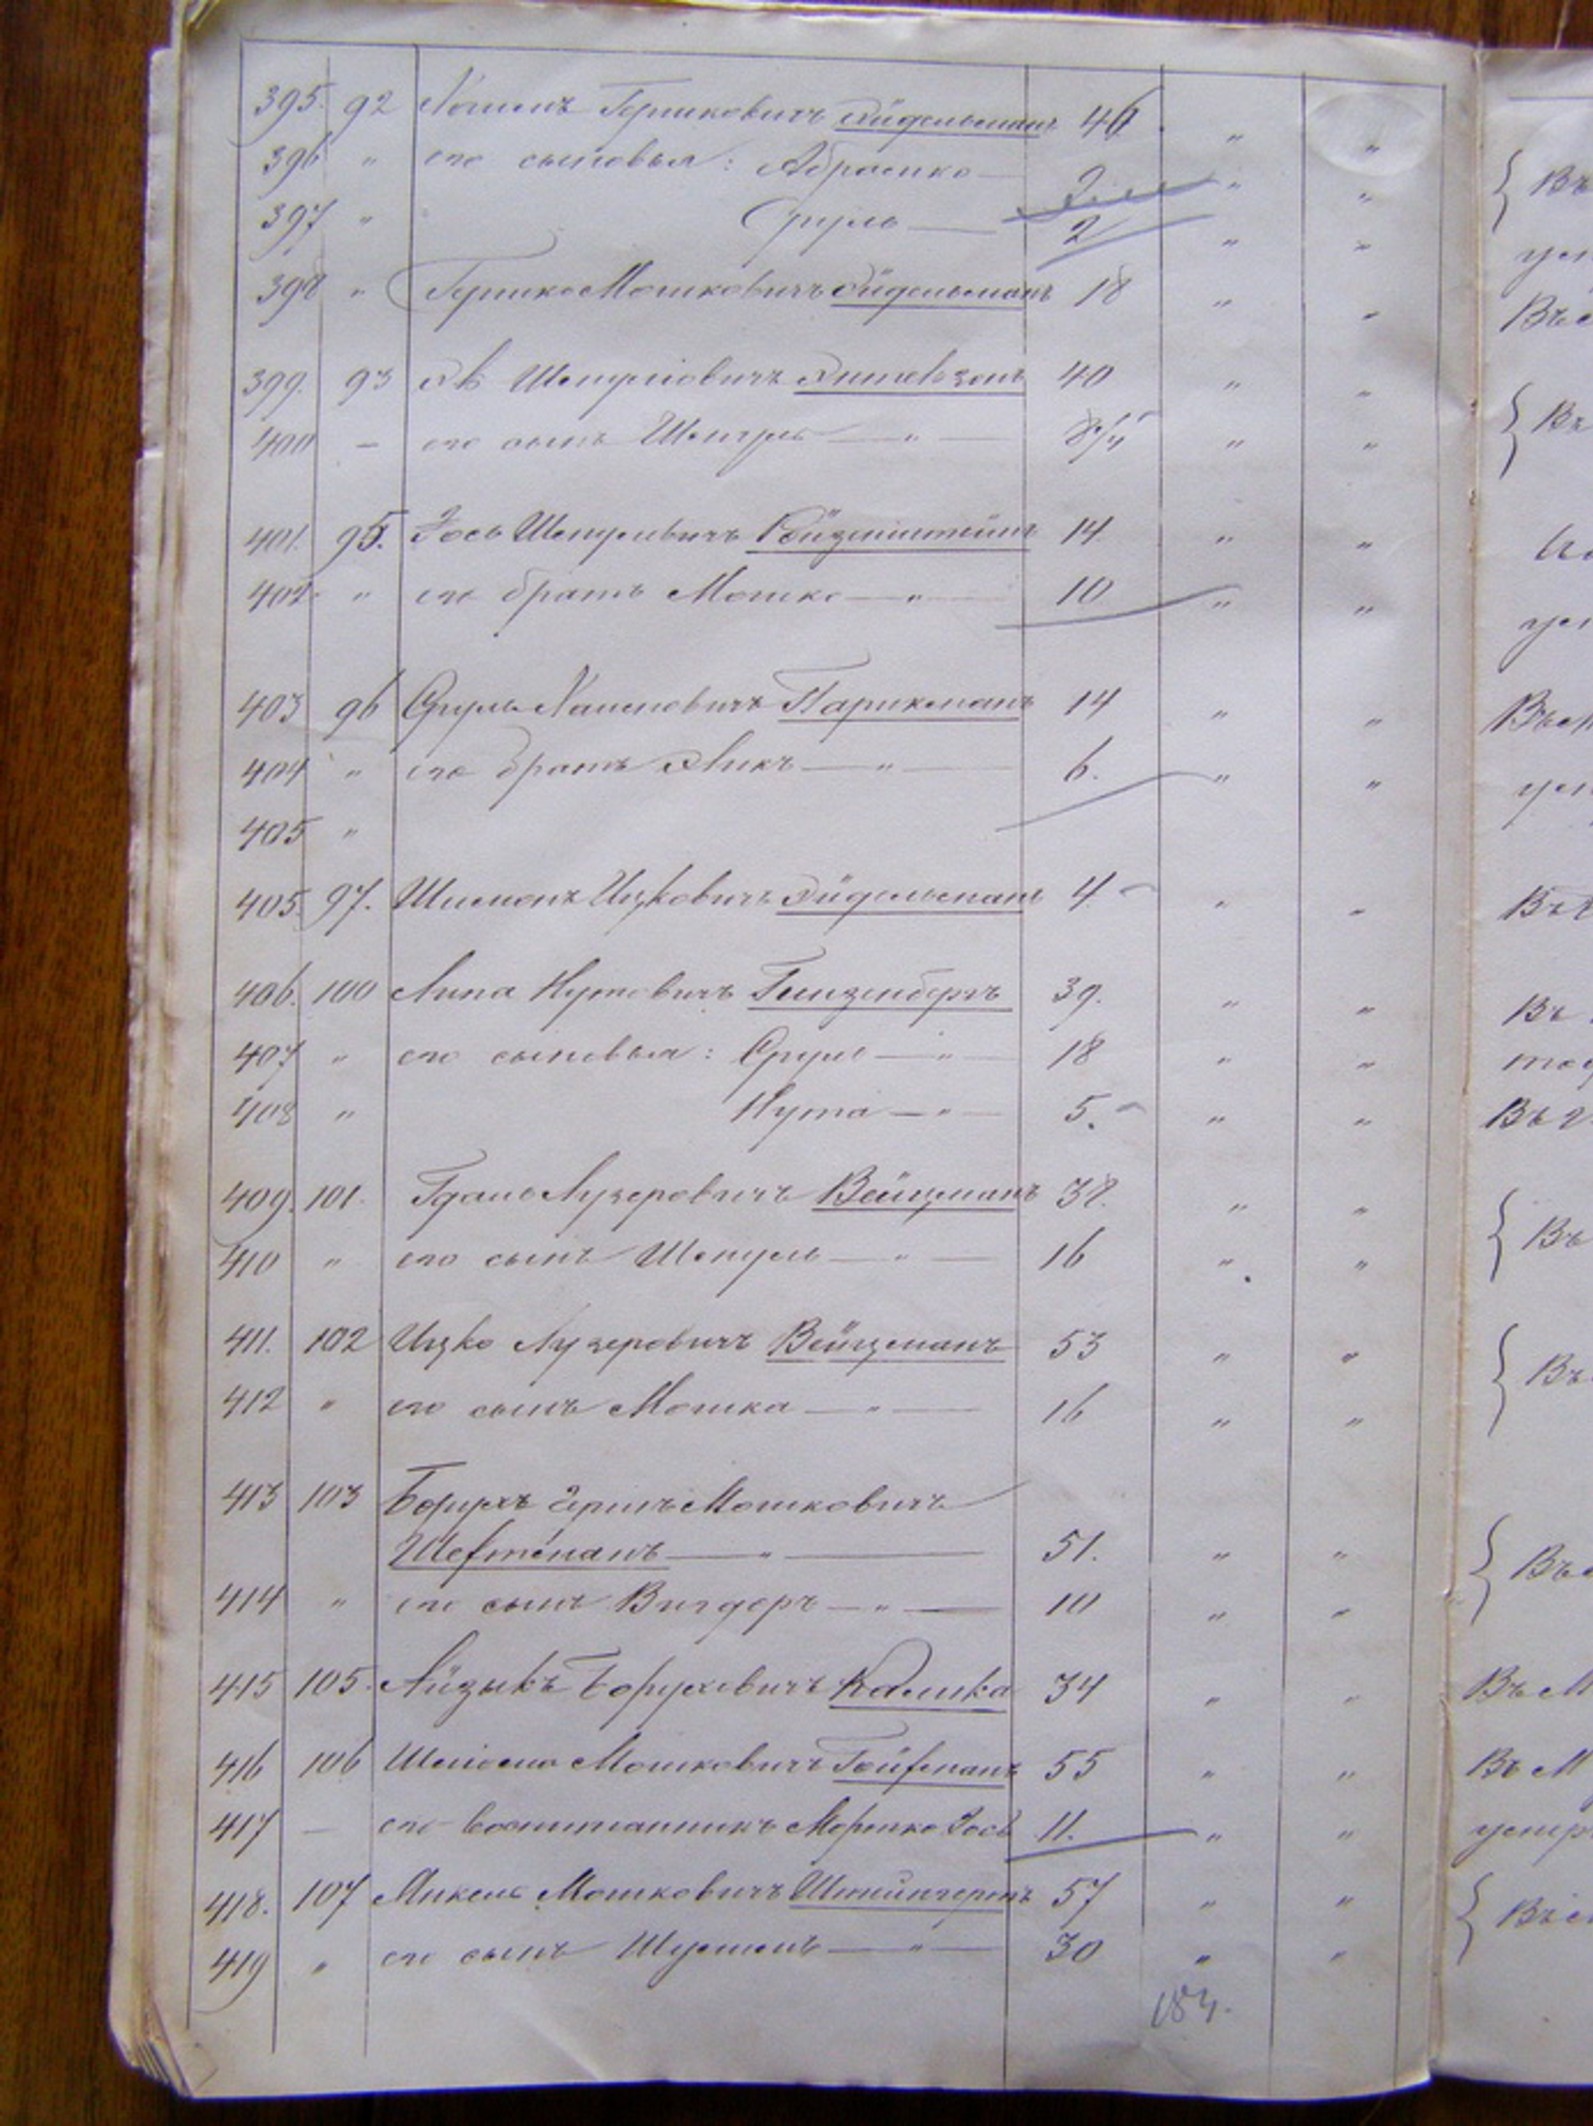 395. 92 Хаимъ Гершковичъ Эйдельманъ 46 " "
396 " его сыновья: Абрамко — 9 " "
397 " Сруль — 2 " "
398 " Гершко Мошковичъ Эйдельманъ 18 " "
399. 93 Шмулiовичъ 40 " "
400 – его сынъ Шмуль — " — " "
401. 95. Зось Шмулевичъ 14 " "
402 " его братъ Мошко — " — 10 " "
403 96 Сруль Хаимовичъ Парикманъ 14 " "
404 " его братъ — " — 6. " "
405 "
405. 97. Шимонъ Ицковичъ Эйдельманъ 4 " "
406. 100 Липа Нутовичъ Гинзенбергъ 39. " "
407 " его сыновья: Сруль — " — 18 " "
408 " Нута — " — 5. " "
409. 101. Гдаль Лузеровичъ Вейцманъ 38. " "
410 " его сынъ Шмуль — " — 16 " "
411. 102 Ицко Лузеровичъ Вейцманъ 53 " "
412 " его сынъ Мошка — " — 16 " "
413 103 Борухъ Гершъ Мошковичъ
Шефтманъ — " — 51. " "
414 " его сынъ Вигдоръ — " — 10 " "
415 105. Айзыкъ Боруховичъ Калика 34 " "
416 106 Шлiома Мошковичъ Гойфманъ 55 " "
417 — его воспитанникъ Мортко Зось 11. " "
418. 107 Микель Мошковичъ Штейнгертъ 57 " "
419 " его сынъ — " — 30 " "
184.